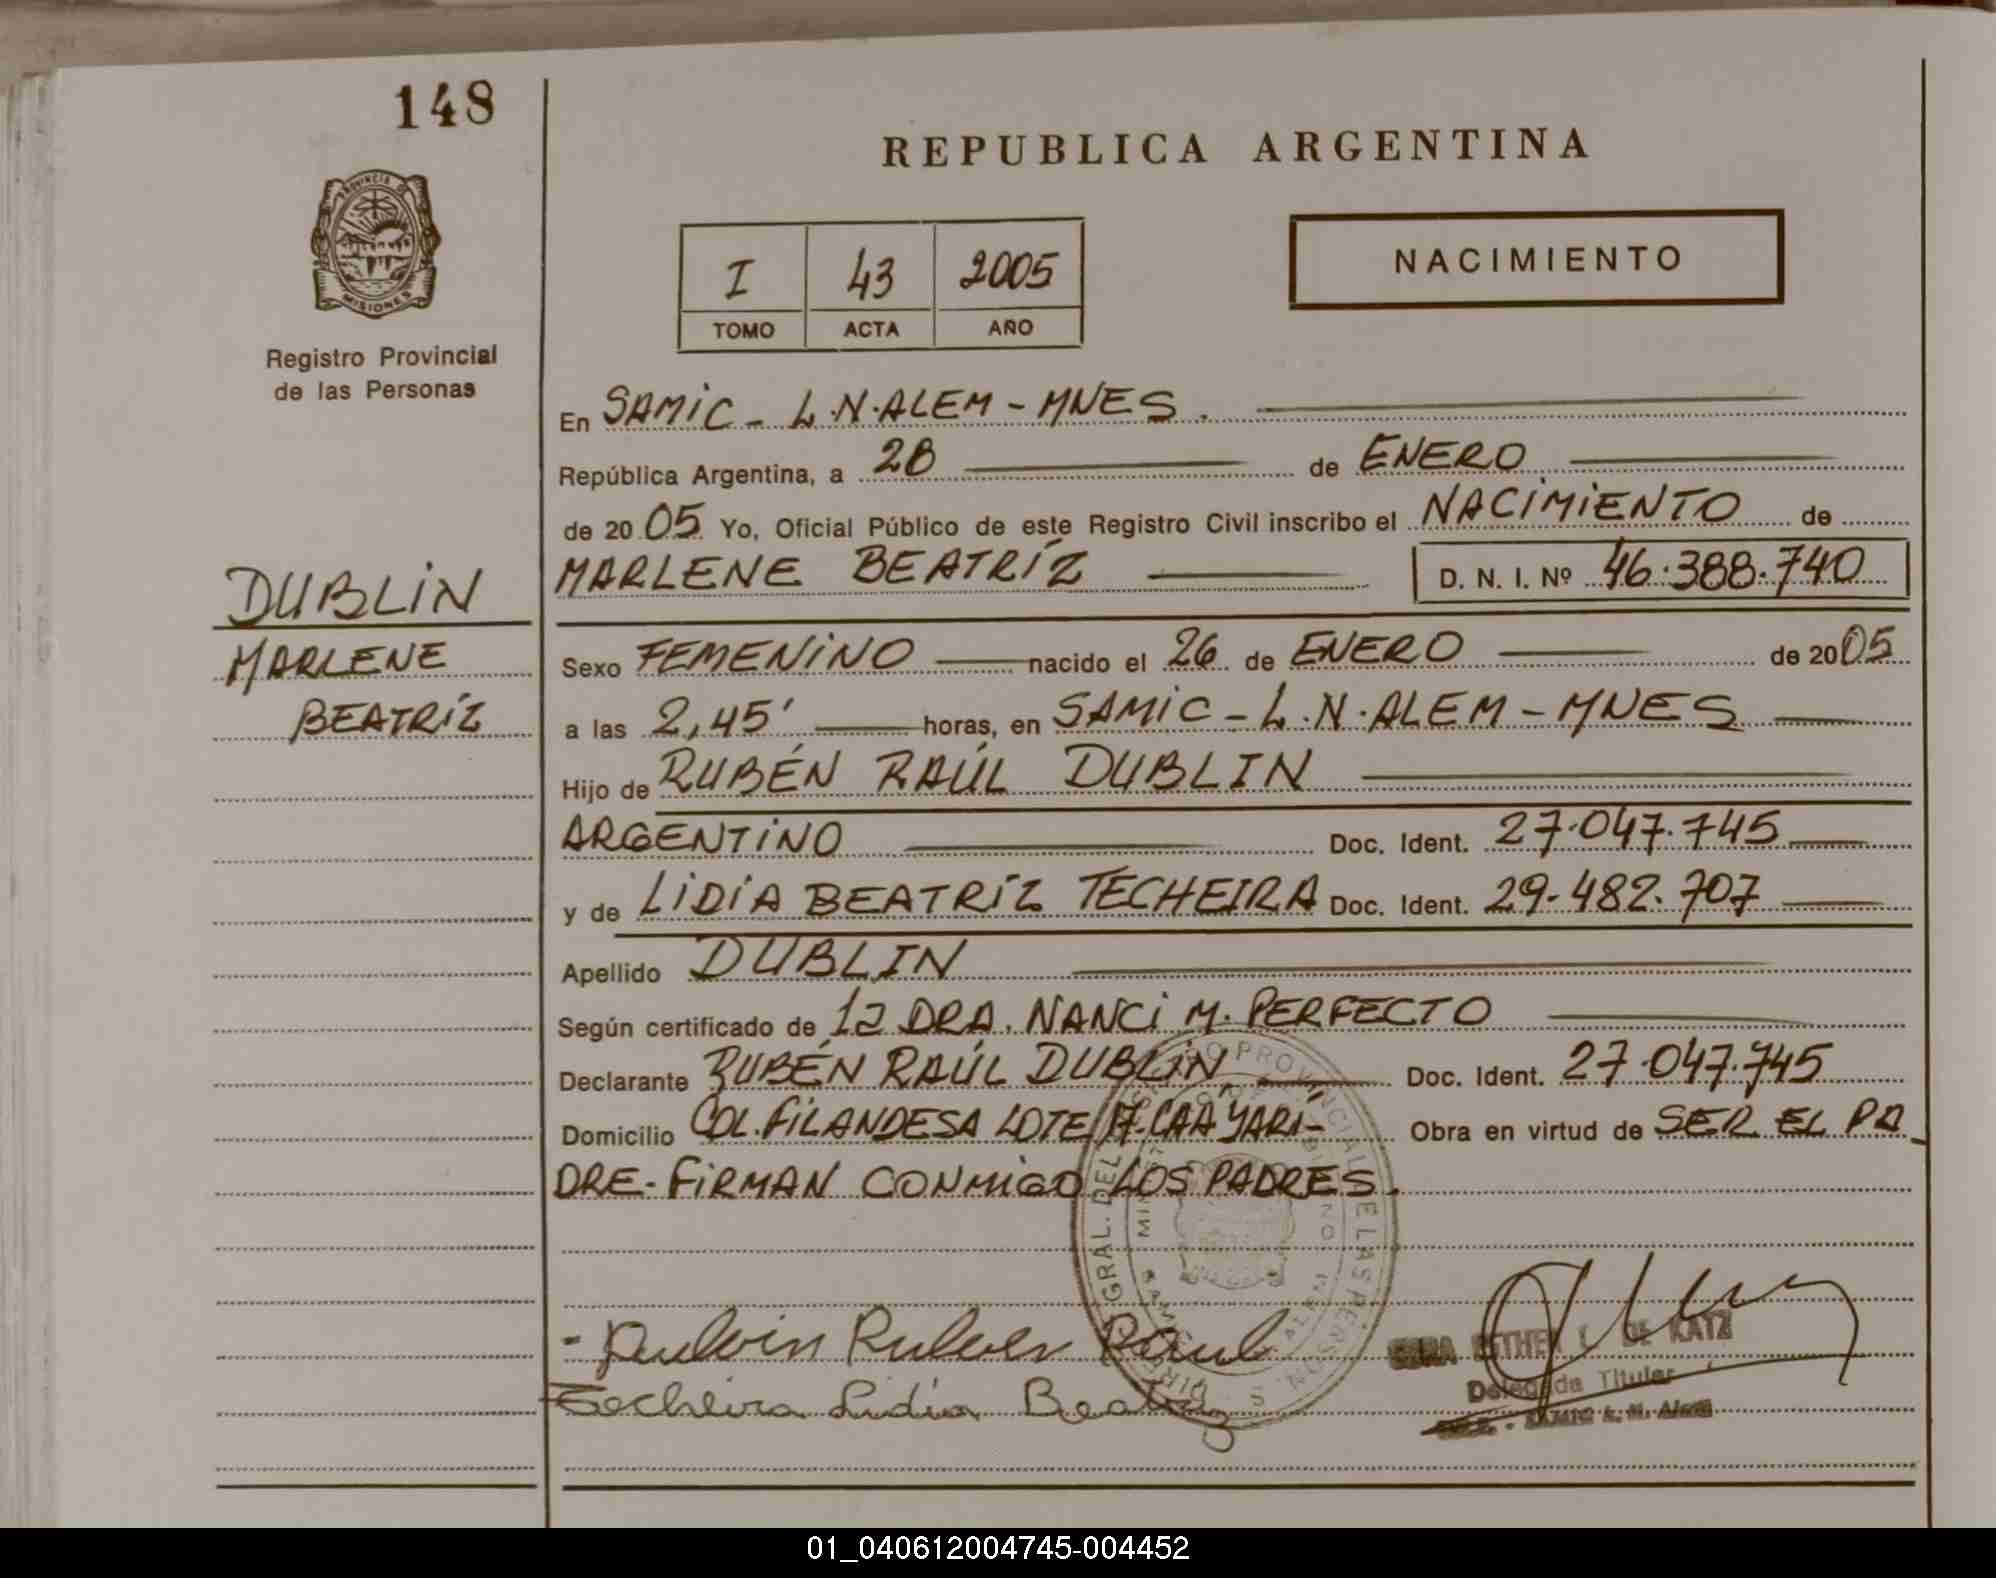 148
REPUBLICA ARGENTINA
PROVINCIA DE
MISIONES
Registro Provincial
de las Personas
I 43 2005
TOMO ACTA AÑO
NACIMIENTO
En SAMIC - L.N.ALEM - MNES.
República Argentina, a 28 de ENERO
de 2005 Yo, Oficial Público de este Registro Civil inscribo el NACIMIENTO de
MARLENE BEATRÍZ D. N. I. Nº 46.388.740
DUBLIN
MARLENE
BEATRÍZ
Sexo FEMENINO nacido el 26 de ENERO de 2005
a las 2,45' horas, en SAMIC - L.N.ALEM - MNES
Hijo de RUBÉN RAÚL DUBLIN
ARGENTINO Doc. Ident. 27.047.745
y de LIDIA BEATRÍZ TECHEIRA Doc. Ident. 29.482.707
Apellido DUBLIN
Según certificado de la DRA. NANCI M. PERFECTO
Declarante RUBÉN RAÚL DUBLIN Doc. Ident. 27.047.745
Domicilio COL. FILANDESA LOTE CAA YARÍ- Obra en virtud de SER EL PA
DRE - FIRMAN CONMIGO LOS PADRES.
- Dublin Ruben Raul
Techeira Lidia Beatriz
ESTHER DE KATZ
Delegada Titular
SAMIC L. N. Alem
01_040612004745-004452